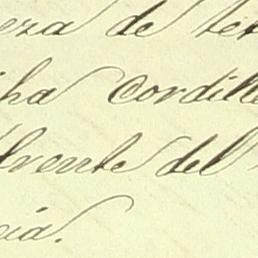 eza de te
cha Cordille
frente del
cia.